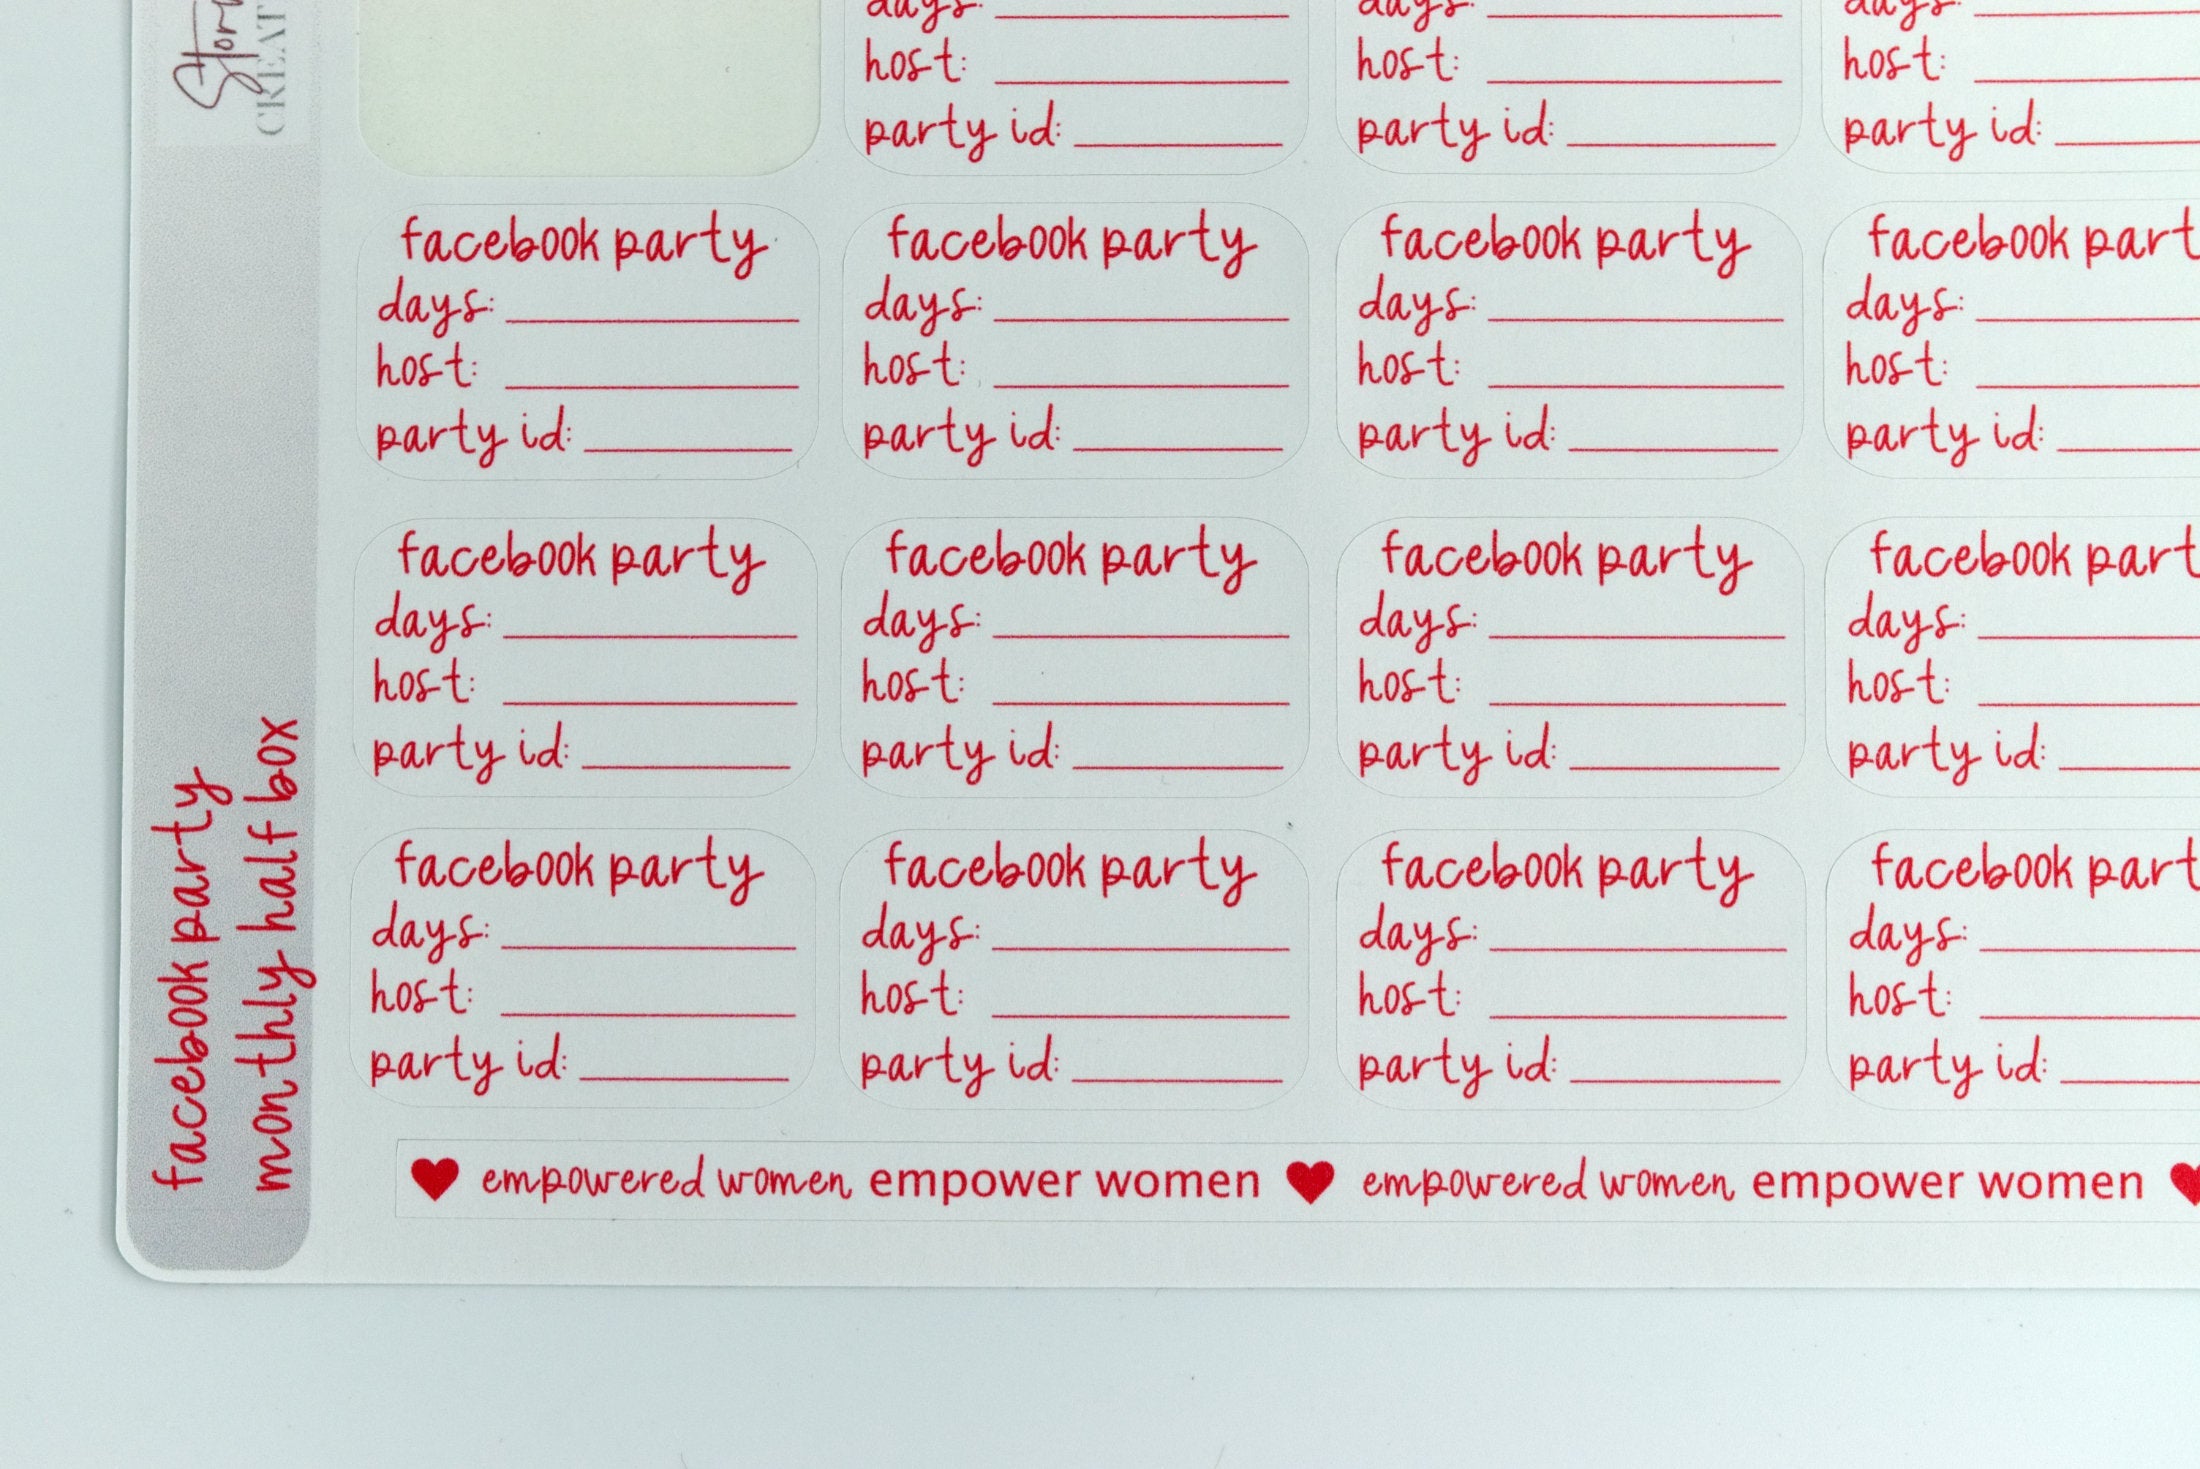 days:
host:
party id:
days:
host:
party id:
days:
host:
party id:
facebook party
days:
host:
party id:
facebook party
days:
host:
party id:
facebook party
days:
host:
party id:
facebook
days:
host:
party id:
facebook party
days:
host:
party id:
facebook party
days:
host:
party id:
facebook party
days:
host:
party id:
facebook
days:
host:
party id:
facebook party
days:
host:
party id:
facebook party
days:
host:
party id:
facebook party
days:
host:
party id:
facebook
days:
host:
party id:
♥ empowered women, empower women ♥ empowered women, empower women ♥
facebook party
monthly half box